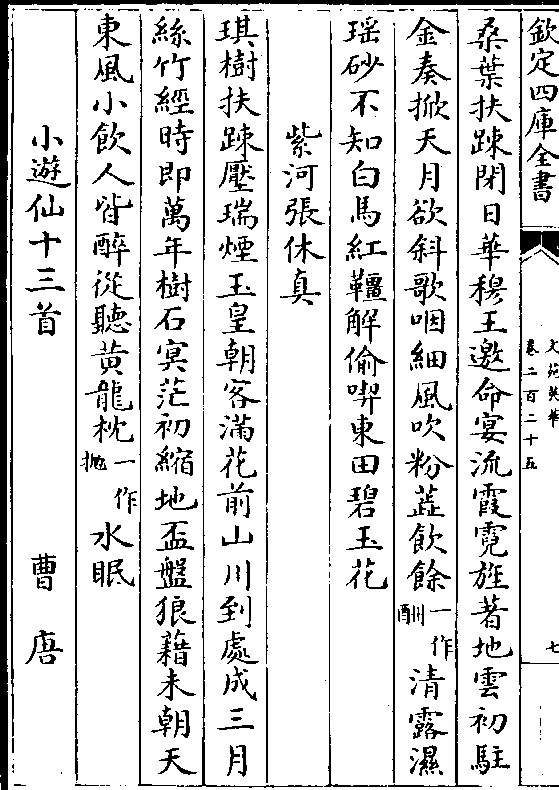 欽定四庫全書
文苑英華
卷二百二十五
七
桑葉扶踈閉日華穆王邀命宴流霞霓旌著地雲初駐
金奏掀天月欲斜歌咽細風吹粉蘂飲餘一作酬清露濕
瑶砂不知白馬紅韁解偷喫東田碧玉花
紫河張休真
琪樹扶踈壓瑞煙玉皇朝客滿花前山川到處成三月
絲竹經時即萬年樹石㝠茫初縮地盃盤狼藉未朝天
東風小飲人皆醉從聽黄龍枕一作抛水眠
小遊仙十三首
曹唐